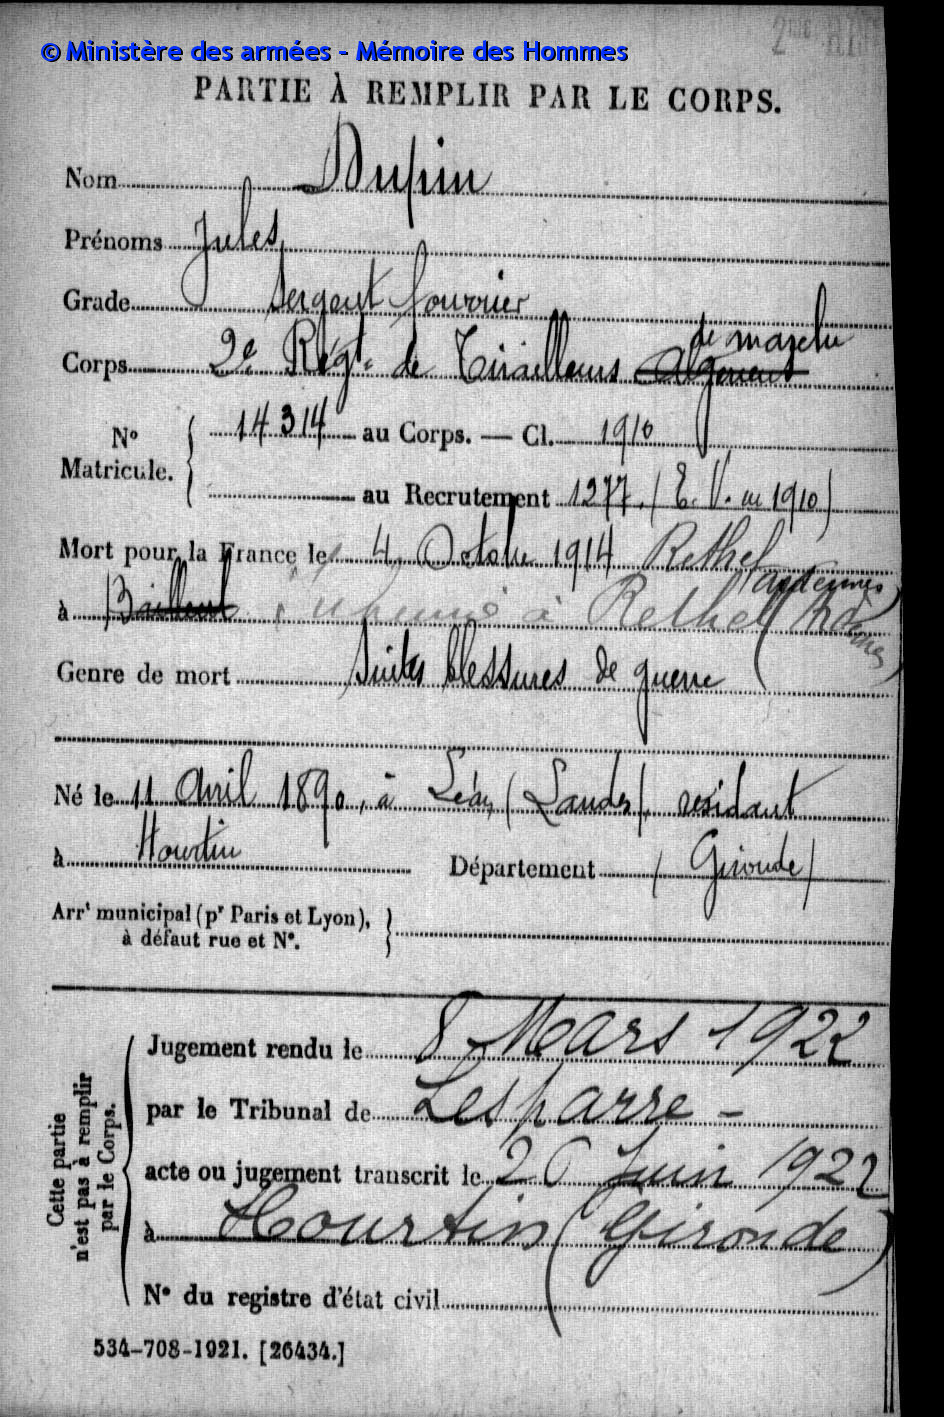 © Ministère des armées - Mémoire des Hommes
PARTIE À REMPLIR PAR LE CORPS.
Nom Dupin
Prénoms Jules
Grade Sergent fourrier
de marche
Corps 2e Régt. de Tirailleurs Algériens
No Matricule. { 14314 au Corps. — Cl. 1910
au Recrutement 1277. (E. V. en 1910)
Mort pour la France le 4 Octobre 1914 Rethel
(Ardennes)
à Bailleul inhumé à Rethel (Ardennes)
Genre de mort Suites blessures de guerre
Né le 11 Avril 1890, à Léon (Landes), résidant
à Hourtin Département (Gironde)
Arrt municipal (pr Paris et Lyon),
à défaut rue et No.
Cette partie
n'est pas à remplir
par le Corps.
Jugement rendu le 8 Mars 1922
par le Tribunal de Lesparre -
acte ou jugement transcrit le 20 Juin 1922
à Hourtin (Gironde)
No du registre d'état civil
534-708-1921. [26434.]